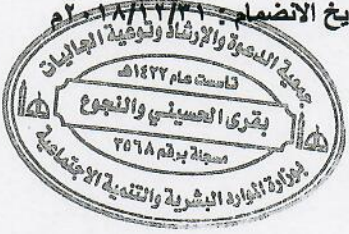 يخ الانضمام: ٢٠١٨/١٢/٣١م
جمعية الدعوة والإرشاد وتوعية الجاليات
تاسست عام ١٤٢٢هـ
بقرى الحسيني والنجوع
مسجلة برقم ٣٥٦٨
بوزارة الموارد البشرية والتنمية الاجتماعية